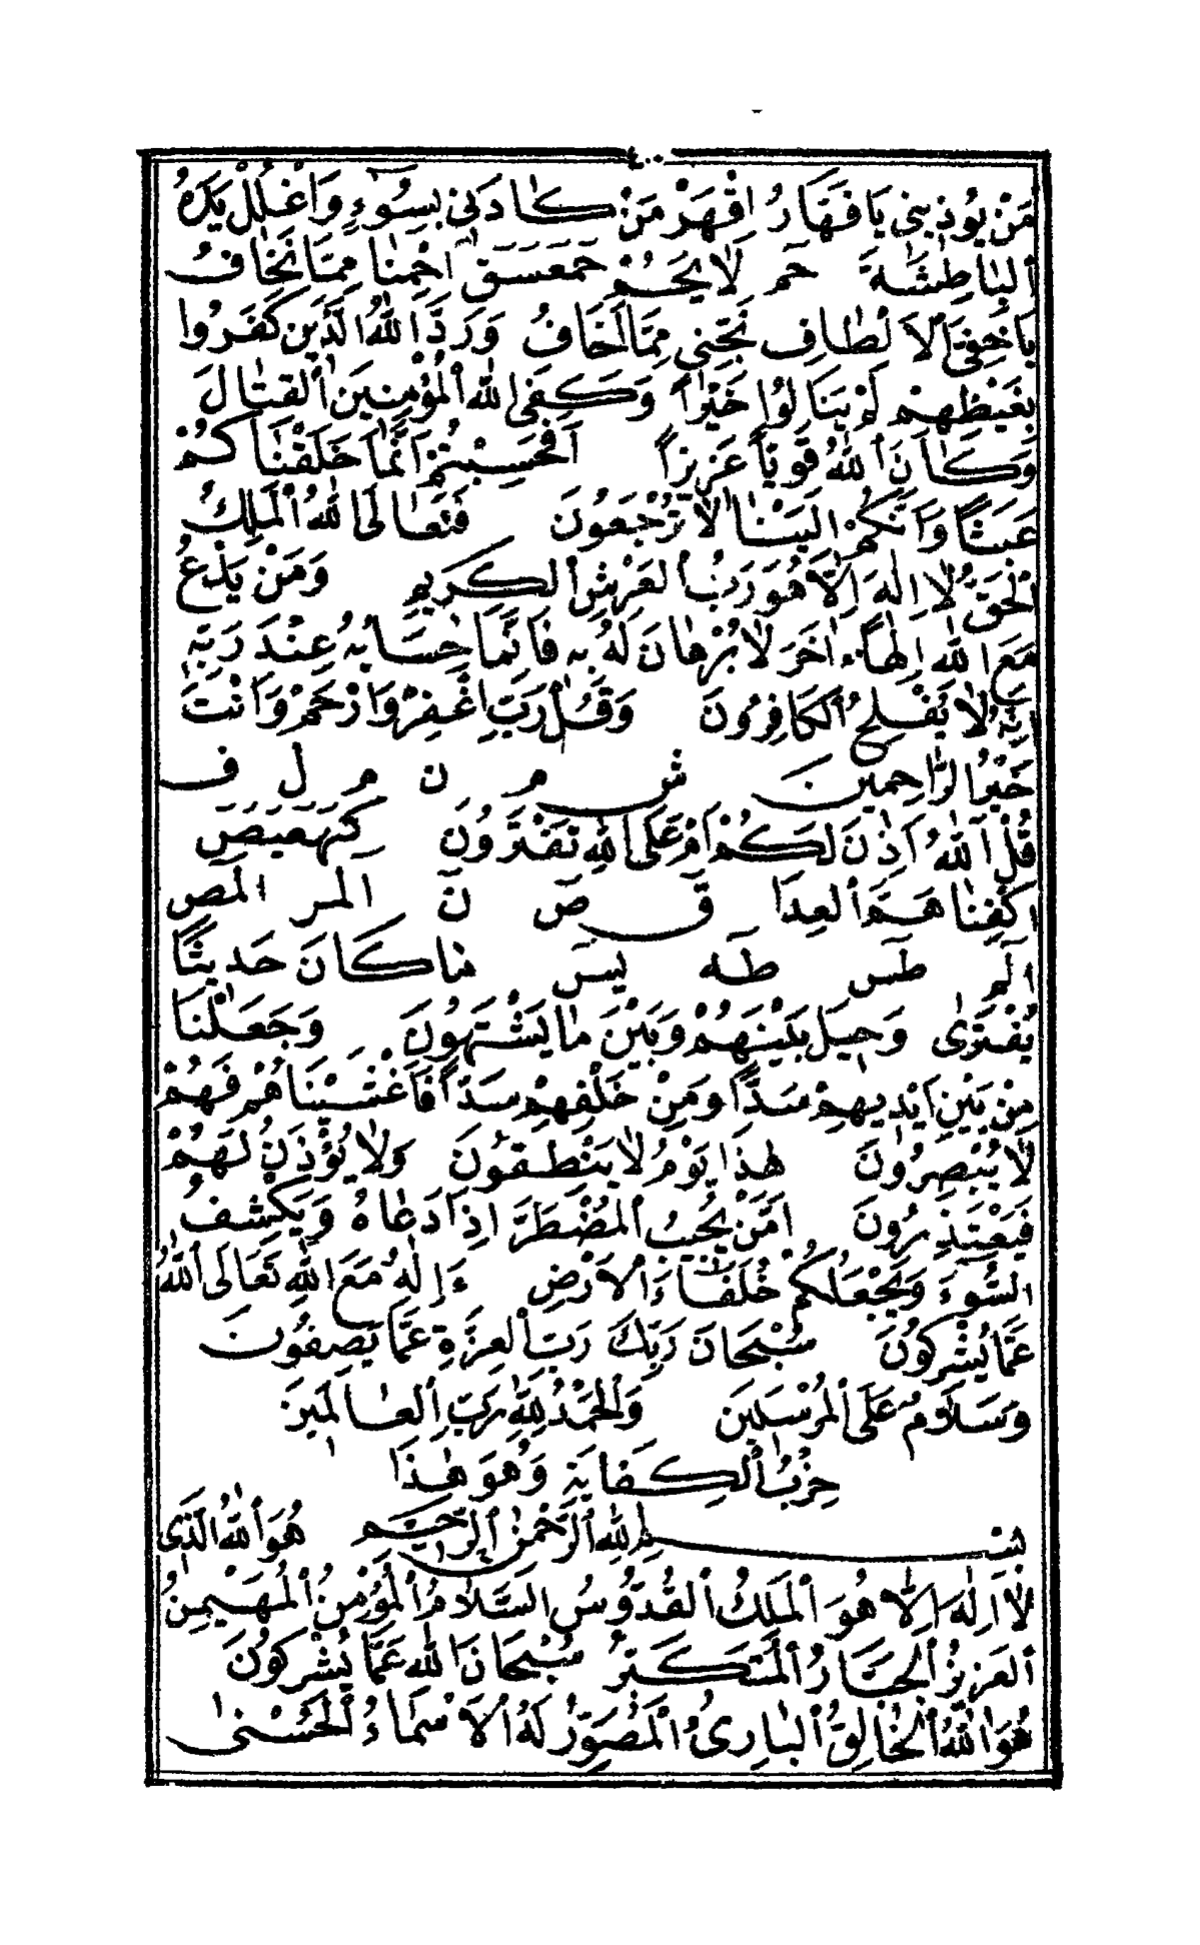 ٤٠٠
مَنْ يُوذِينِى يَا قَهَّارُ اِقْهَرْ مَنْ كَادَنِى بِسُوٓءٍ وَاغْلُلْ يَدَهُ
ٱلبَاطِشَةَ حٓمٓ لَا يَجُمْ حٓمٓعٓسٓقٓ اَحْمِنَا مِمَّا نَخَافُ
يَا خَفِىَّ ٱلاَلْطَافِ نَجِّنِى مِمَّا اَخَافُ وَرَدَّ اللّٰهُ الَّذِينَ كَفَرُوا
بِغَيْظِهِمْ لَمْ يَنَالُوا خَيْراً وَكَفَى اللّٰهُ ٱلْمُؤْمِنِينَ ٱلقِتَالَ
وَكَانَ ٱللّٰهُ قَوِيّاً عَزِيزاً اَفَحَسِبْتُمْ اَنَّمَا خَلَقْنَاكُمْ
عَبَثاً وَاَنَّكُمْ اِلَيْنَا لَا تُرْجَعُونَ فَتَعَالَى اللّٰهُ ٱلْمَلِكُ
ٱلْحَقُّ لَا اِلٰهَ اِلَّا هُوَ رَبُّ ٱلعَرْشِ ٱلكَرِيمِ وَمَنْ يَدْعُ
مَعَ اللّٰهِ اِلٰهاً اٰخَرَ لَا بُرْهَانَ لَهُ بِهِ فَاِنَّمَا حِسَابُهُ عِنْدَ رَبِّهِ
اِنَّهُ لَا يُفْلِحُ ٱلكَافِرُونَ وَقُلْ رَبِّ اِغْفِرْ وَارْحَمْ وَاَنْتَ
خَيْرُ الرَّاحِمِينَ ش م ن م ل ف
قُلْ آللّٰهُ اَذِنَ لَكُمْ اَمْ عَلَى اللّٰهِ تَفْتَرُونَ كٓهٰيٰعٓصٓ
اكْفِنَا هَمَّ ٱلعِدَا قٓ صٓ نٓ الٓمٓر الٓمٓصٓ
الٓمٓ طٰسٓ طٰهٰ يٰسٓ مَا كَانَ حَدِيثًا
يُفْتَرٰى وَحِيلَ بَيْنَهُمْ وَبَيْنَ مَا يَشْتَهُونَ وَجَعَلْنَا
مِنْ بَيْنِ اَيْدِيهِمْ سَدّاً وَمِنْ خَلْفِهِمْ سَدّاً فَاَغْشَيْنَاهُمْ فَهُمْ
لَا يُبْصِرُونَ هٰذَا يَوْمُ لَا يَنْطِقُونَ وَلَا يُؤْذَنُ لَهُمْ
فَيَعْتَذِرُونَ اَمَّنْ يُجِيبُ ٱلمُضْطَرَّ اِذَا دَعَاهُ وَيَكْشِفُ
السُّوٓءَ وَيَجْعَلُكُمْ خُلَفَاءَ ٱلاَرْضِ ءَاِلٰهٌ مَعَ اللّٰهِ تَعَالَى ٱللّٰهُ
عَمَّا يُشْرِكُونَ سُبْحَانَ رَبِّكَ رَبِّ ٱلعِزَّةِ عَمَّا يَصِفُونَ
وَسَلَامٌ عَلَى ٱلمُرْسَلِينَ وَٱلحَمْدُ لِلّٰهِ رَبِّ ٱلعَالَمِينَ
حِزْبُ ٱلكِفَايَةِ وَهُوَ هٰذَا
بِسْمِ اللّٰهِ ٱلرَّحْمٰنِ ٱلرَّحِيمِ هُوَ ٱللّٰهُ الَّذِى
لَا اِلٰهَ اِلَّا هُوَ ٱلمَلِكُ ٱلقُدُّوسُ السَّلَامُ ٱلمُؤْمِنُ ٱلمُهَيْمِنُ
ٱلعَزِيزُ ٱلجَبَّارُ ٱلمُتَكَبِّرُ سُبْحَانَ اللّٰهِ عَمَّا يُشْرِكُونَ
هُوَ اللّٰهُ ٱلخَالِقُ ٱلبَارِىُٔ ٱلمُصَوِّرُ لَهُ ٱلاَسْمَاءُ ٱلحُسْنٰى